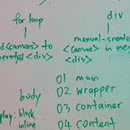 for loop
div
manual-create
<canvas> to
<canvas> in mem
<div>
<div>
01 main
02 wrapper
body
03 container
play: block
inline
04 content